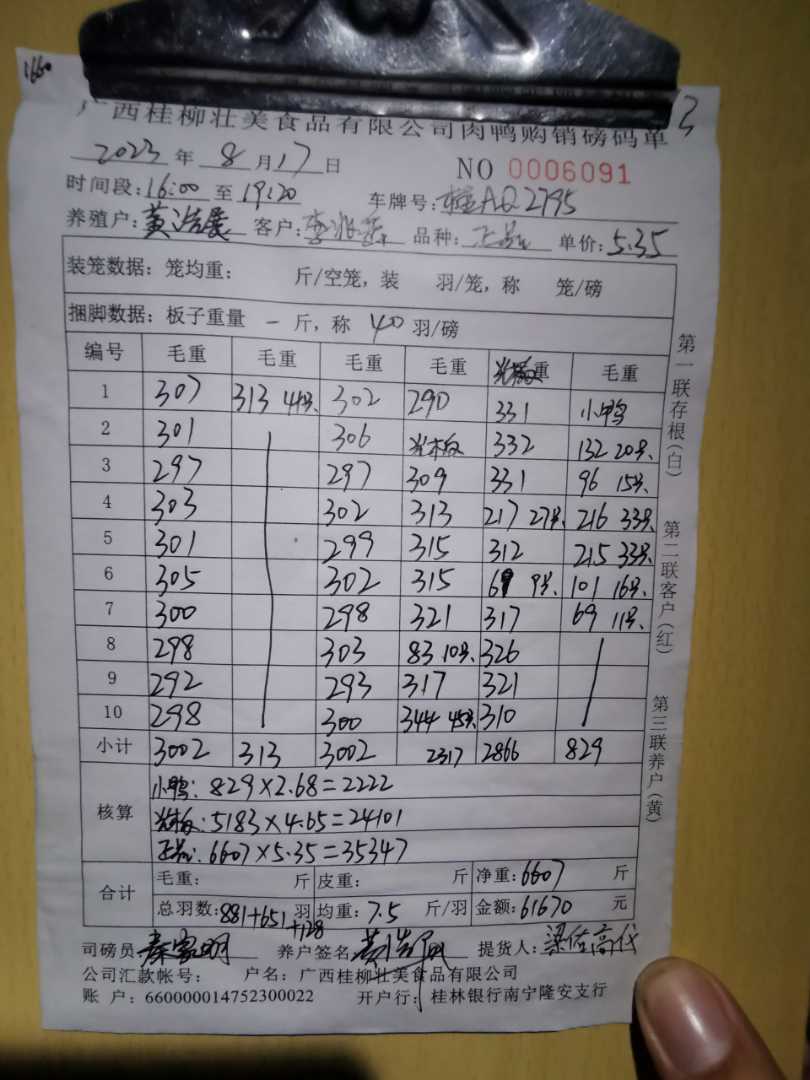 1660
3
广西桂柳壮美食品有限公司肉鸭购销磅码单
2023 年 8 月 17 日 NO 0006091
时间段:16:00 至 19:20 车牌号: AQ2795
养殖户: 黄 客户: 李 品种: 正品 单价: 5.35
装笼数据: 笼均重: 斤/空笼, 装 羽/笼, 称 笼/磅
捆脚数据: 板子重量 一 斤, 称 40 羽/磅
编号 毛重 毛重 毛重 毛重 重 毛重
1 307 313 302 290 331 小鸭
2 301 306 332 132 20只
3 297 297 309 331 96 15只
4 303 302 313 217 27只 216 33只
5 301 299 315 312 215 33只
6 305 302 315 9只 101 16只
7 300 298 321 317 69 11只
8 298 303 83 10只 326
9 292 293 317 321
10 298 300 344 310
小计 3002 313 3002 2317 2866 829
核算
小鸭: 829×2.68=2222
: 5183×4.65=24101
正品: 6607×5.35=35347
合计
毛重: 斤 皮重: 斤 净重: 6607 斤
总羽数: 881+651+128 羽 均重: 7.5 斤/羽 金额: 61670 元
司磅员 秦家明 养户签名 黄 提货人: 梁
公司汇款帐号: 户名: 广西桂柳壮美食品有限公司
账 户: 660000014752300022 开户行: 桂林银行南宁隆安支行
第一联存根(白)
第二联客户(红)
第三联养户(黄)